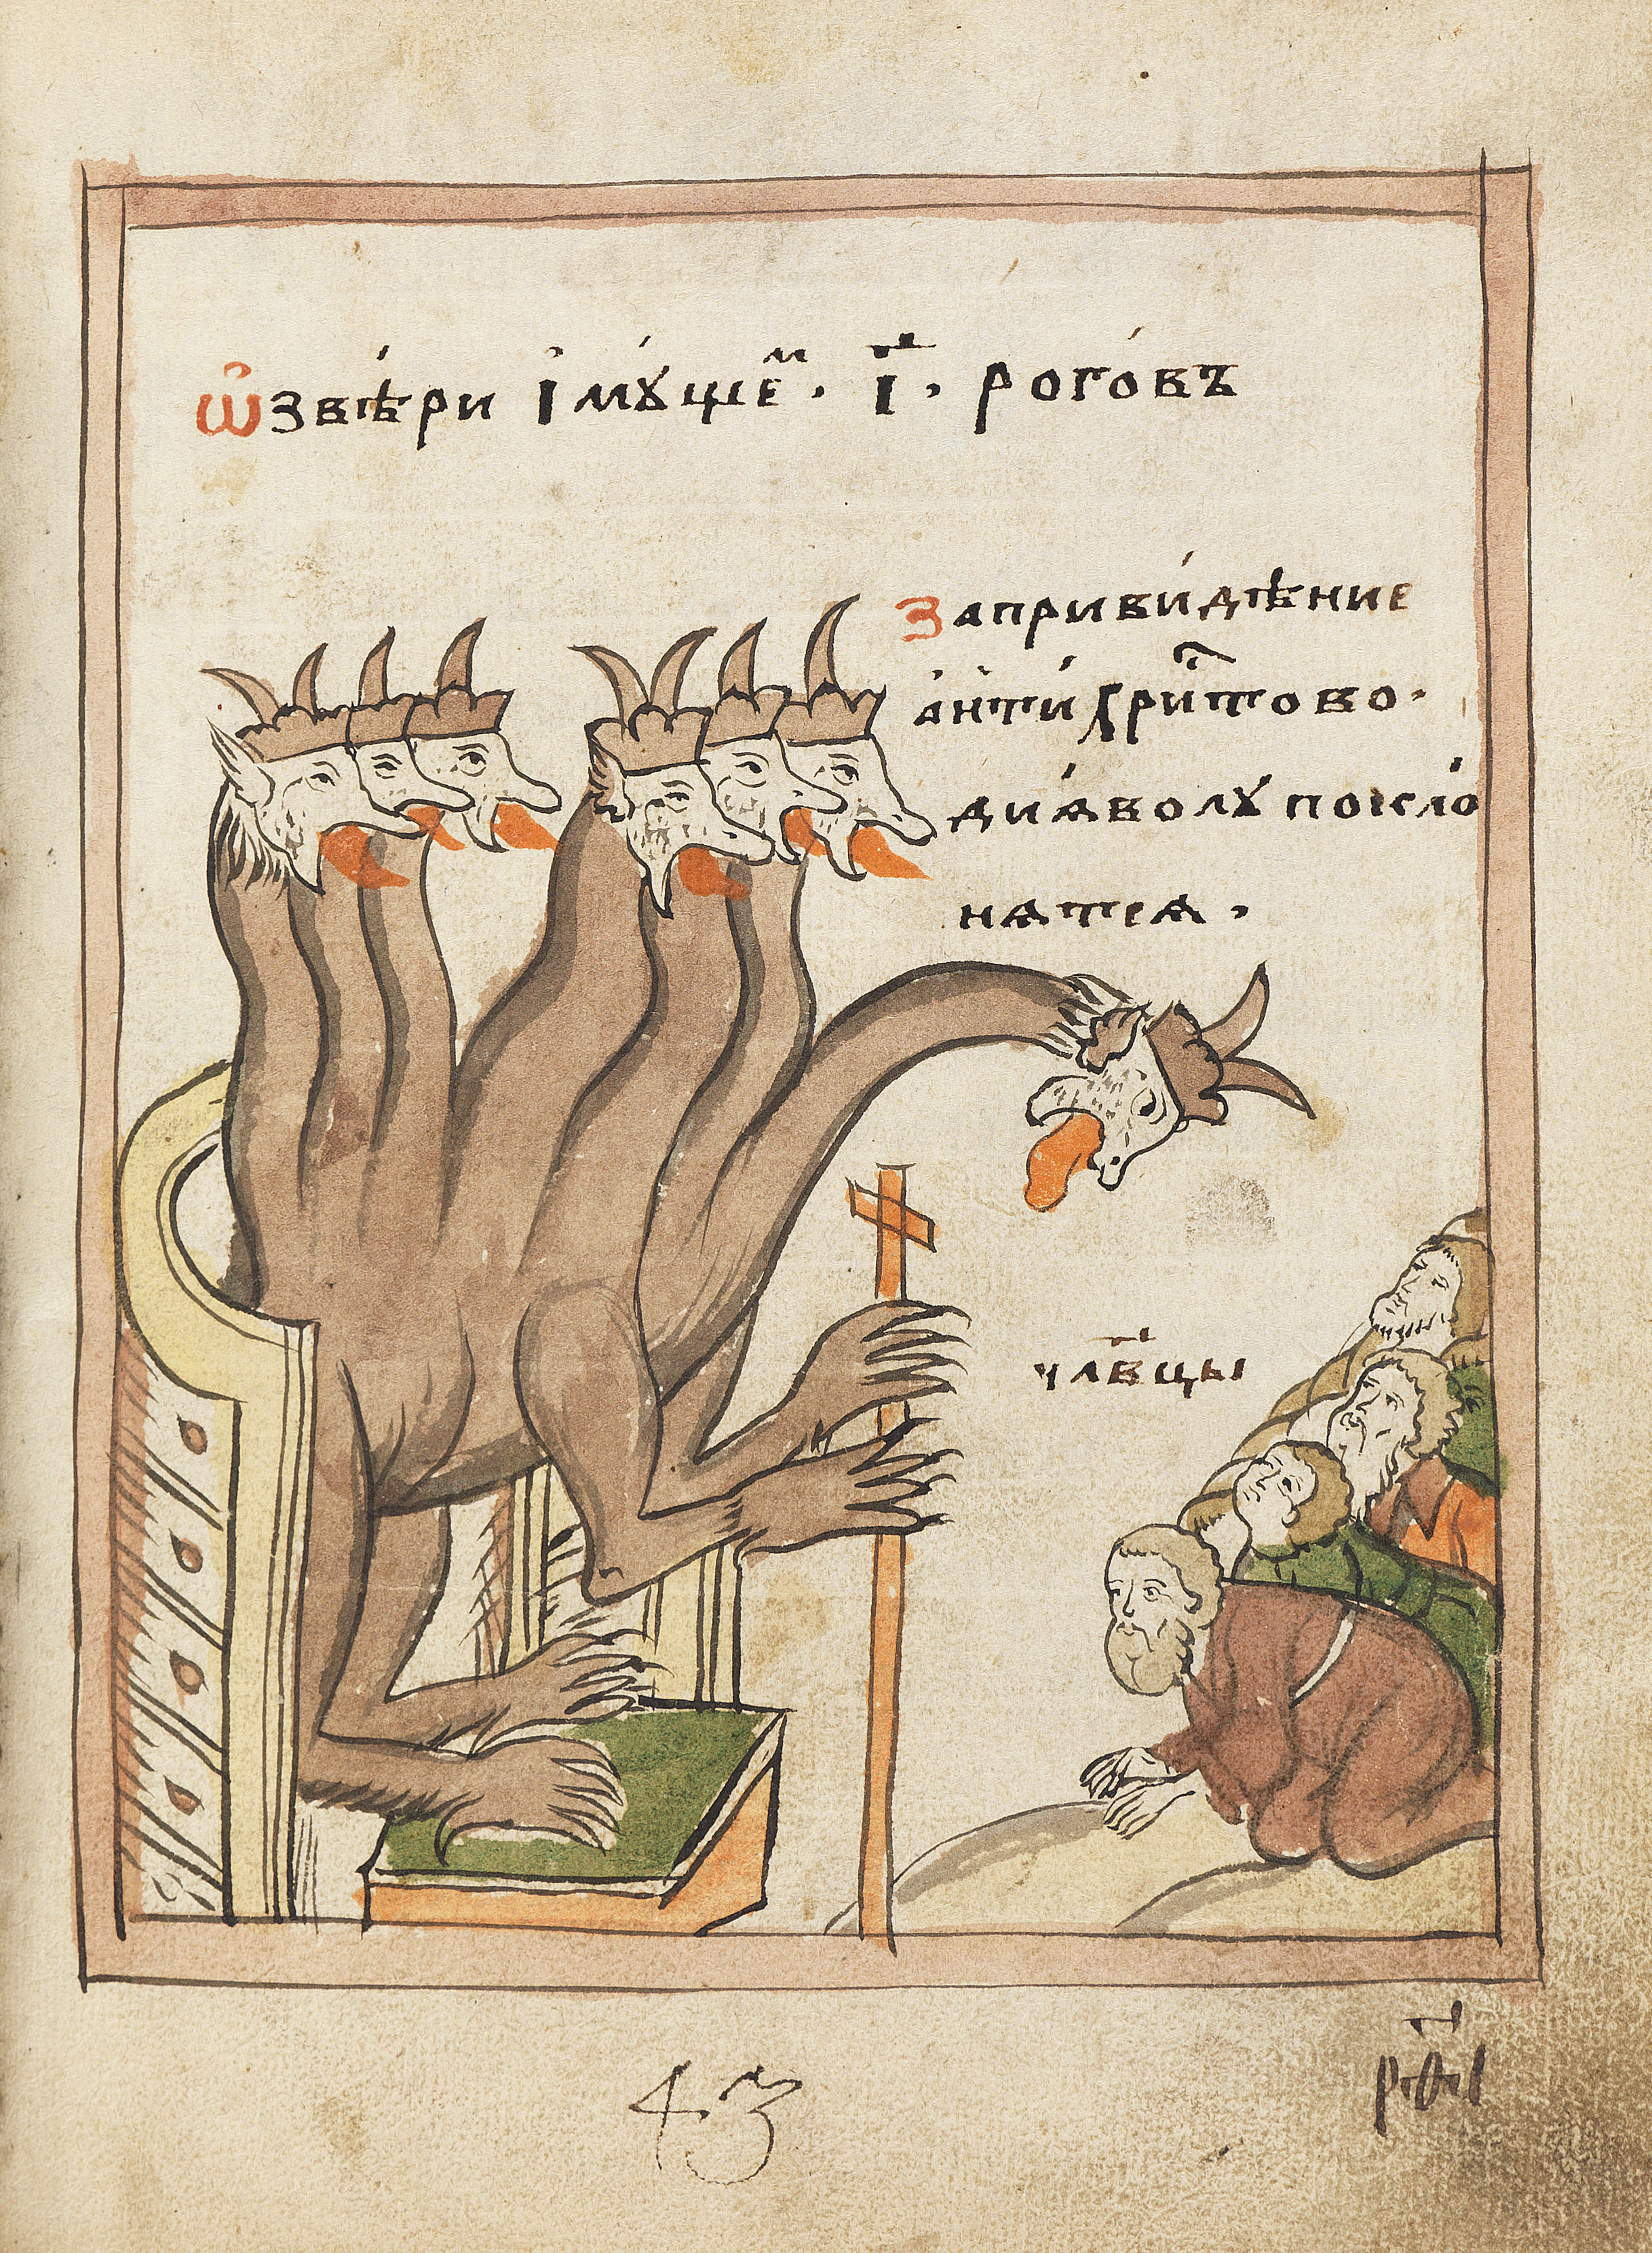 Ѡ҆звѣ́ри і҆мꙋ́щеⷨ. і҃. рого́въ
Запривидѣ́ние
а҆нти́хри҃тово.
диа́волꙋ покло́
нѧтсѧ.
члв҃цы
43